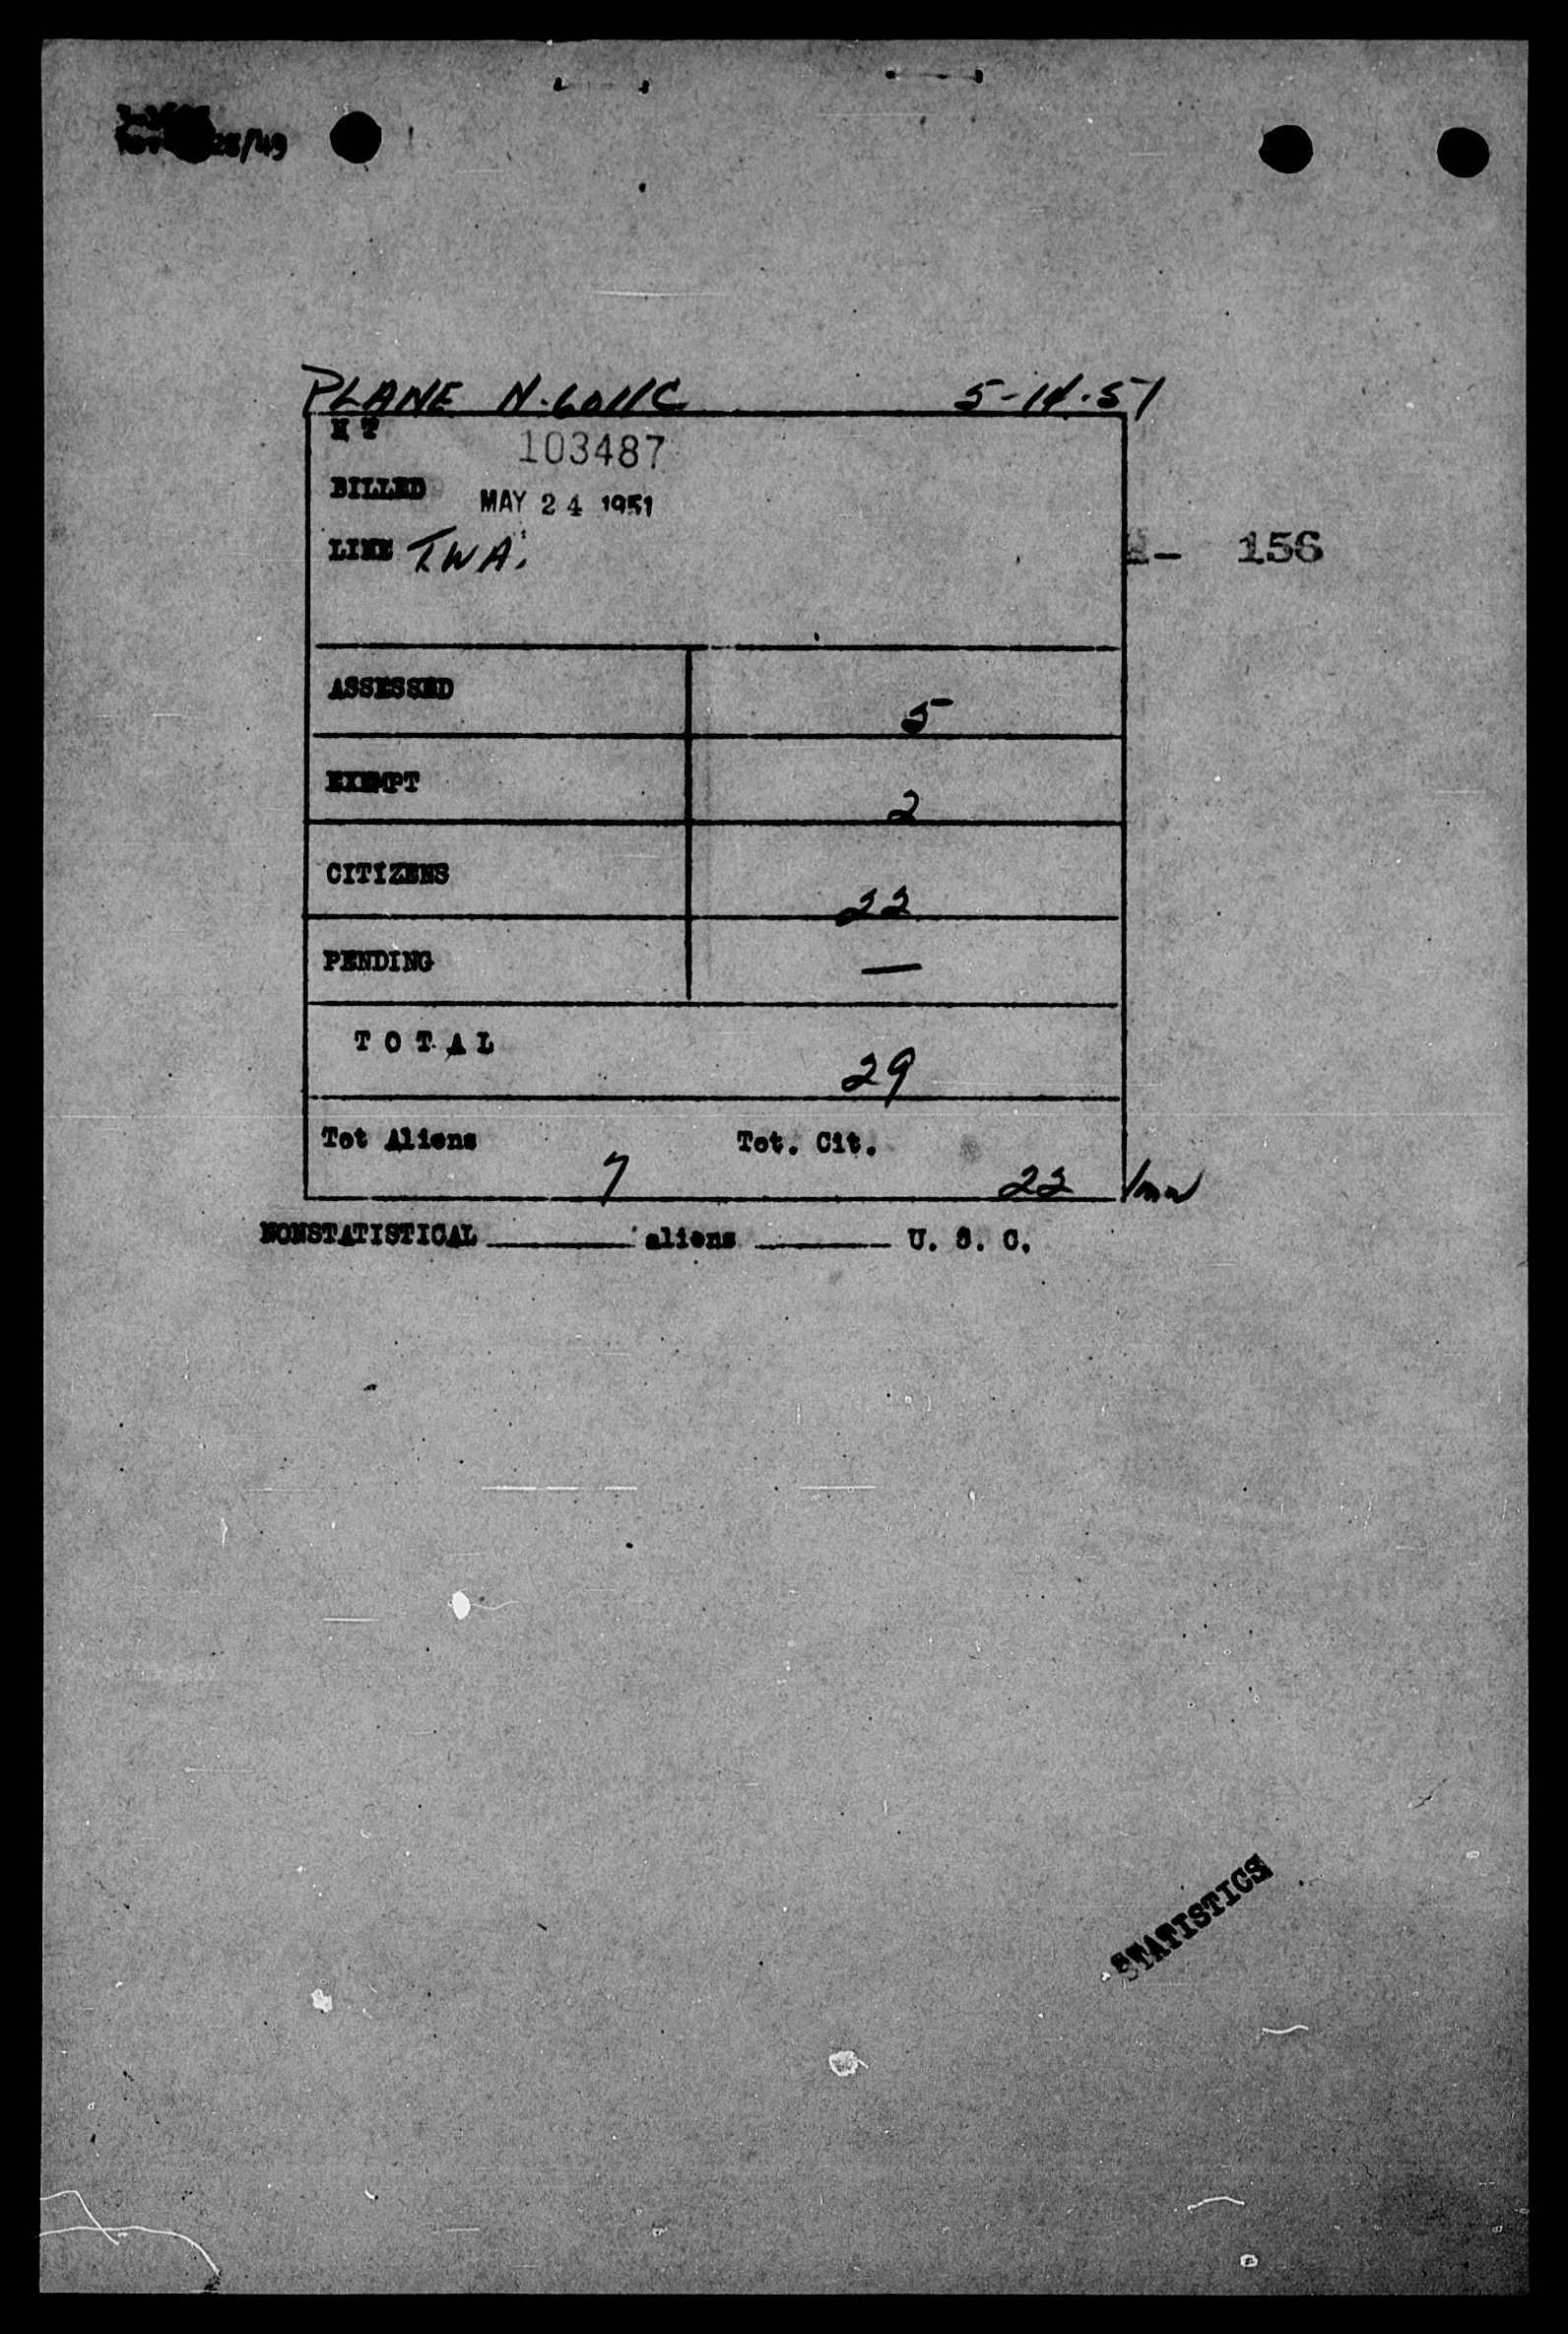 25/49
PLANE N-6011C 5-14-51
H T 103487
BILLED MAY 24 1951
LINE T.W.A.
- 156
ASSESSED 5
EXEMPT 2
CITIZENS 22
PENDING —
TOTAL 29
Tot Aliens 7 Tot. Cit. 22
NONSTATISTICAL ______ aliens ______ U. S. C.
STATISTICS